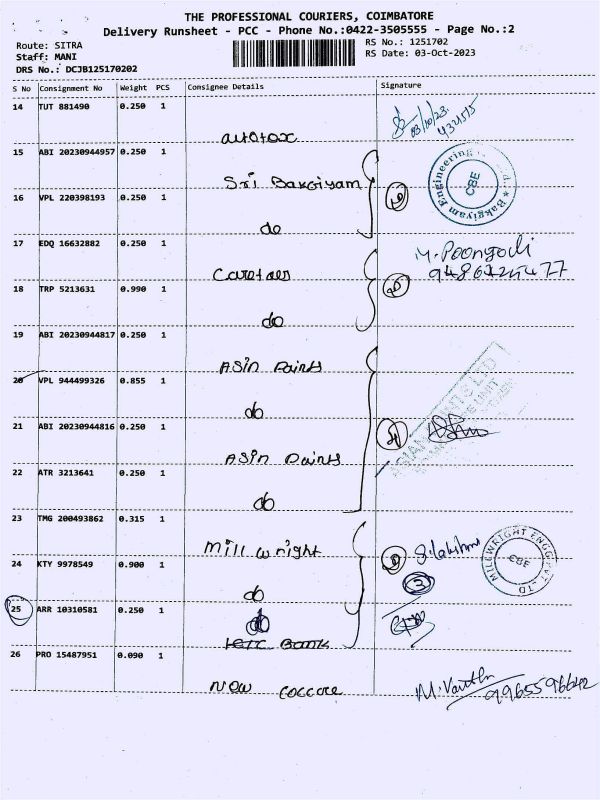 THE PROFESSIONAL COURIERS, COIMBATORE
Delivery Runsheet - PCC - Phone No.:0422-3505555 - Page No.:2
Route: SITRA
Staff: MANI
DRS No.: DCJB125170202
RS No.: 1251702
RS Date: 03-Oct-2023
S No Consignment No Weight PCS Consignee Details Signature
14 TUT 881490 0.250 1
autotax
03/10/23
15 ABI 20230944957 0.250 1
Sri Bakgiyam
16 VPL 220398193 0.250 1
do
Bakgiyam Engineering
CBE
17 EDQ 16632882 0.250 1
M. Poongodi
18 TRP 5213631 0.990 1
do
19 ABI 20230944817 0.250 1
Asin Paints
20 VPL 944499326 0.855 1
do
21 ABI 20230944816 0.250 1
Asin Paints
4
ASIAN PAINTS LTD
22 ATR 3213641 0.250 1
do
23 TMG 200493862 0.315 1
mill wright
24 KTY 9978549 0.900 1
do
3
MILLWRIGHT ENGG PVT LTD
CBE
25 ARR 10310581 0.250 1
do
Bank
26 PRO 15487951 0.090 1
New
9965596642